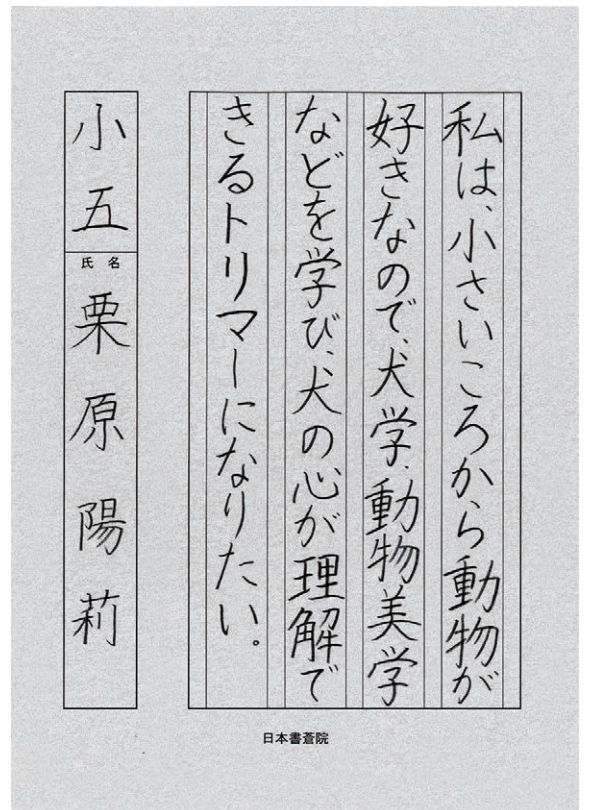 私は、小さいころから動物が
好きなので、犬学、動物美学
などを学び、犬の心が理解で
きるトリマーになりたい。
小五
氏名
栗原陽莉
日本書蒼院